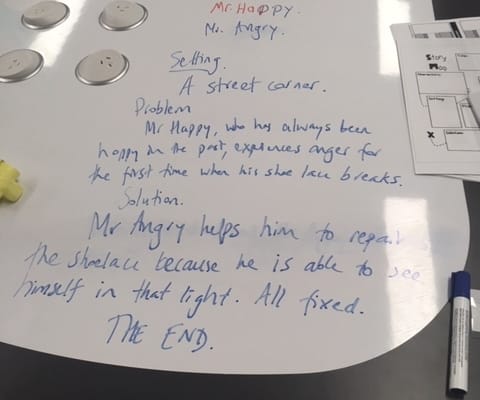 Mr. Happy.
Mr. Angry.
Setting.
A street corner.
Problem
Mr Happy, who has always been
happy in the past, experiences anger for
the first time when his shoe lace breaks.
Solution.
Mr Angry helps him to repair
the shoelace because he is able to see
himself in that light. All fixed.
THE END.
Story
Map